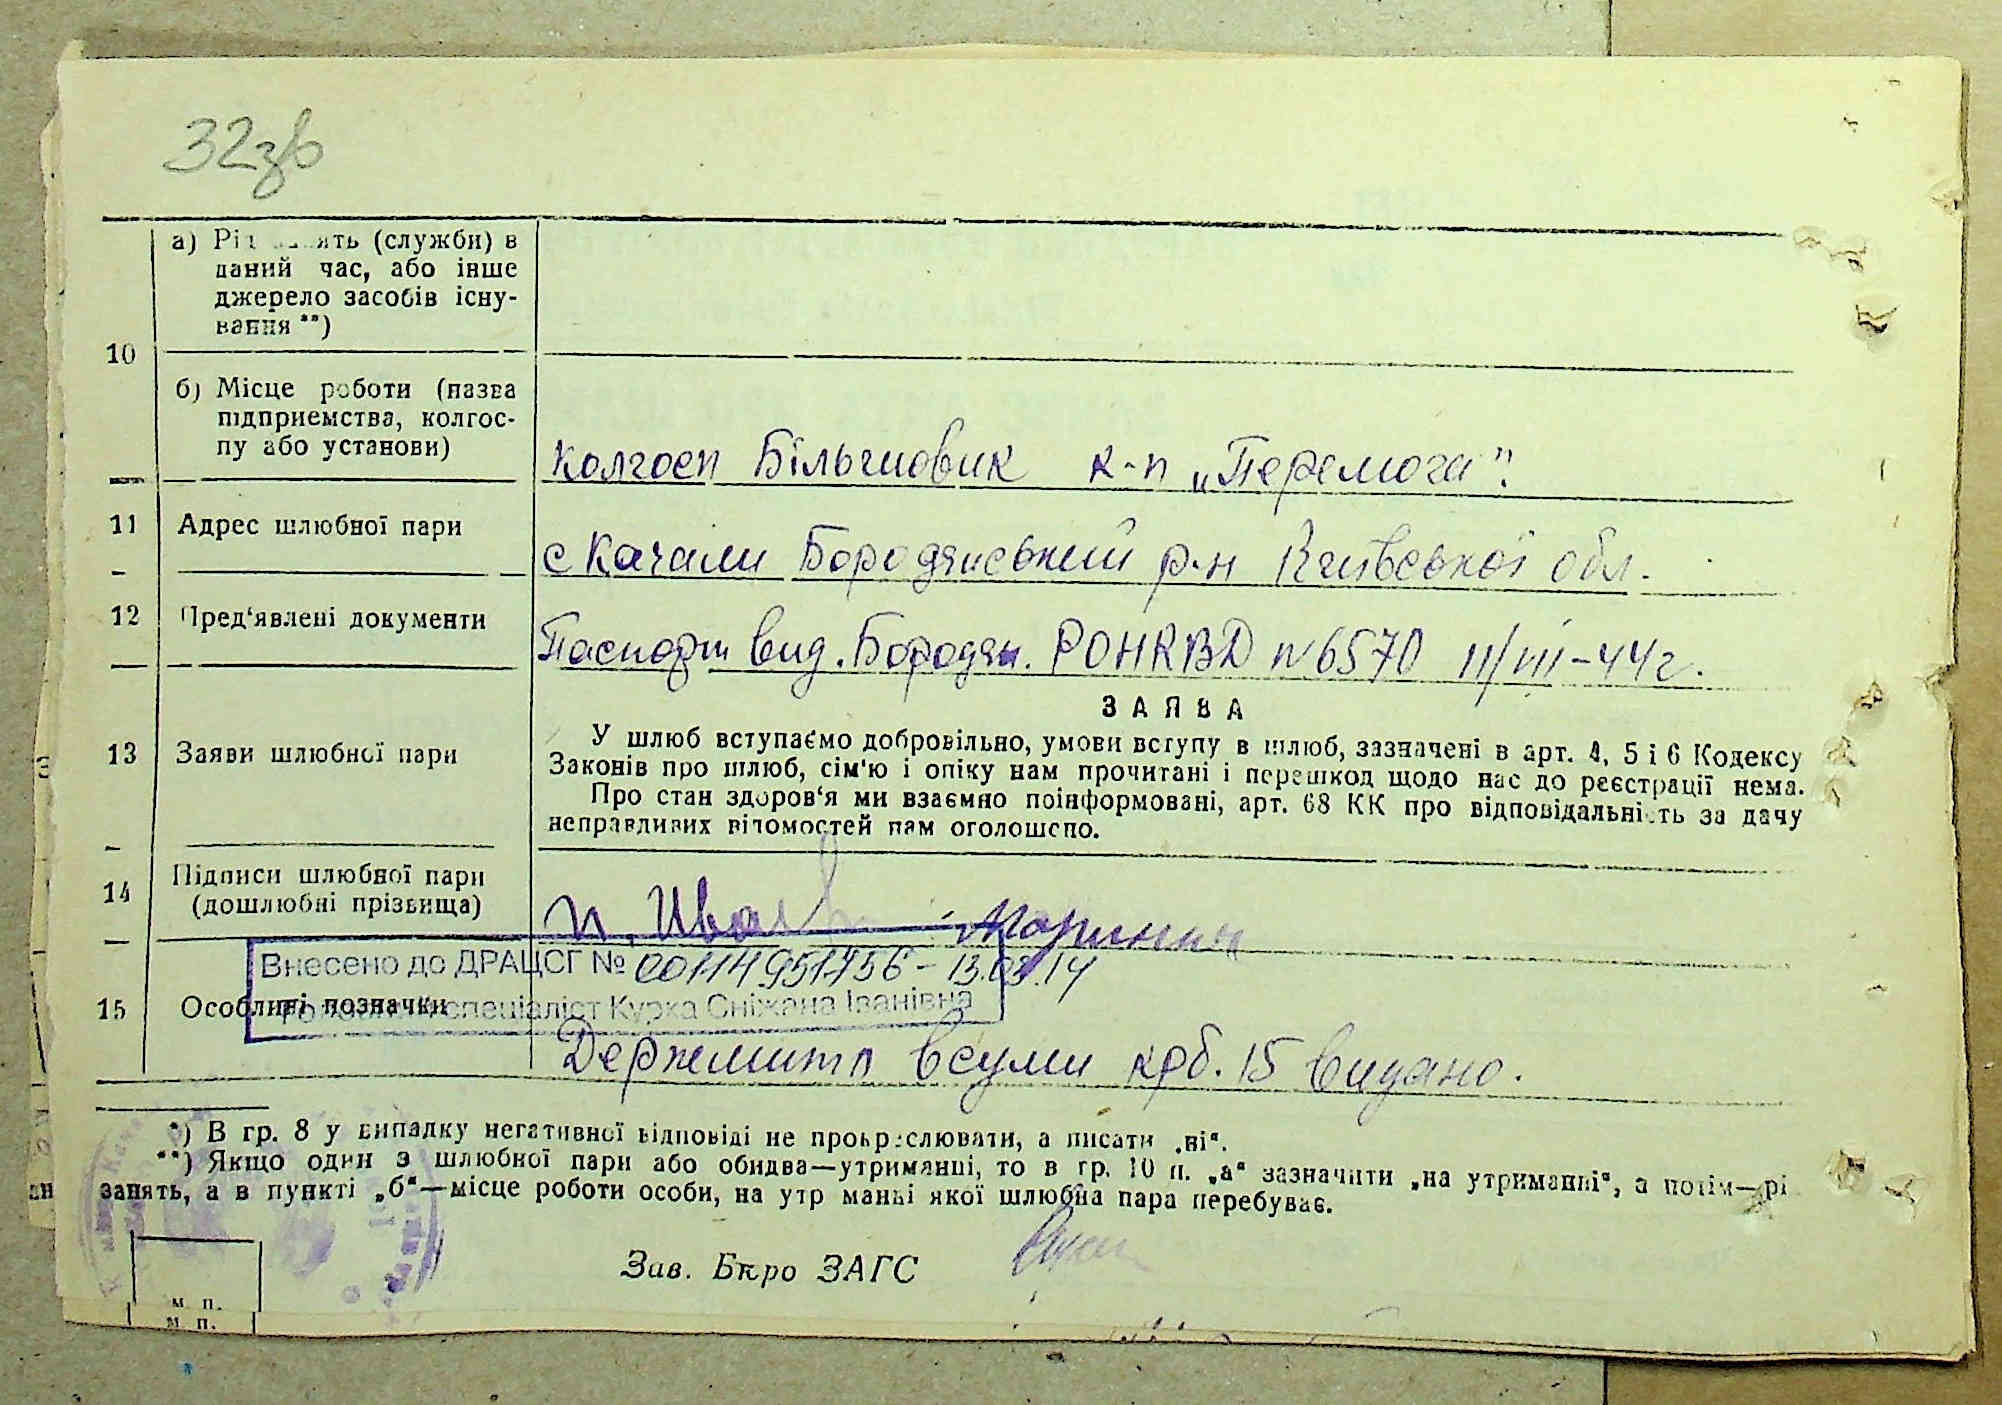 32зв
10
а) Рід занять (служби) в
даний час, або інше
джерело засобів існу-
вання **)
б) Місце роботи (назва
підприємства, колгос-
пу або установи)
колгосп Більшовик к-п „Перемога".
11 Адрес шлюбної пари
с Качали Бородянський р-н Київської обл.
12 Пред'явлені документи
Паспорт вид. Бородян. РОНКВД № 6570 11/VIII-44 г.
ЗАЯВА
13 Заяви шлюбної пари
У шлюб вступаємо добровільно, умови вступу в шлюб, зазначені в арт. 4, 5 і 6 Кодексу
Законів про шлюб, сім'ю і опіку нам прочитані і перешкод щодо нас до реєстрації нема.
Про стан здоров'я ми взаємно поінформовані, арт. 68 КК про відповідальність за дачу
неправдивих відомостей нам оголошено.
14 Підписи шлюбної пари
(дошлюбні прізвища)
Внесено до ДРАЦСГ № 00114951756 - 13.03.14
спеціаліст Курка Сніжана Іванівна
15 Особливі позначки
Держмито в суми крб. 15 видано.
*) В гр. 8 у випадку негативної відповіді не прокреслювати, а писати „ні".
**) Якщо один з шлюбної пари або обидва—утриманці, то в гр. 10 п. „а" зазначити „на утриманні", а потім—рі
занять, а в пункті „б"—місце роботи особи, на утр маньі якої шлюбна пара перебуває.
Зав. Бюро ЗАГС
м. п.
м. п.